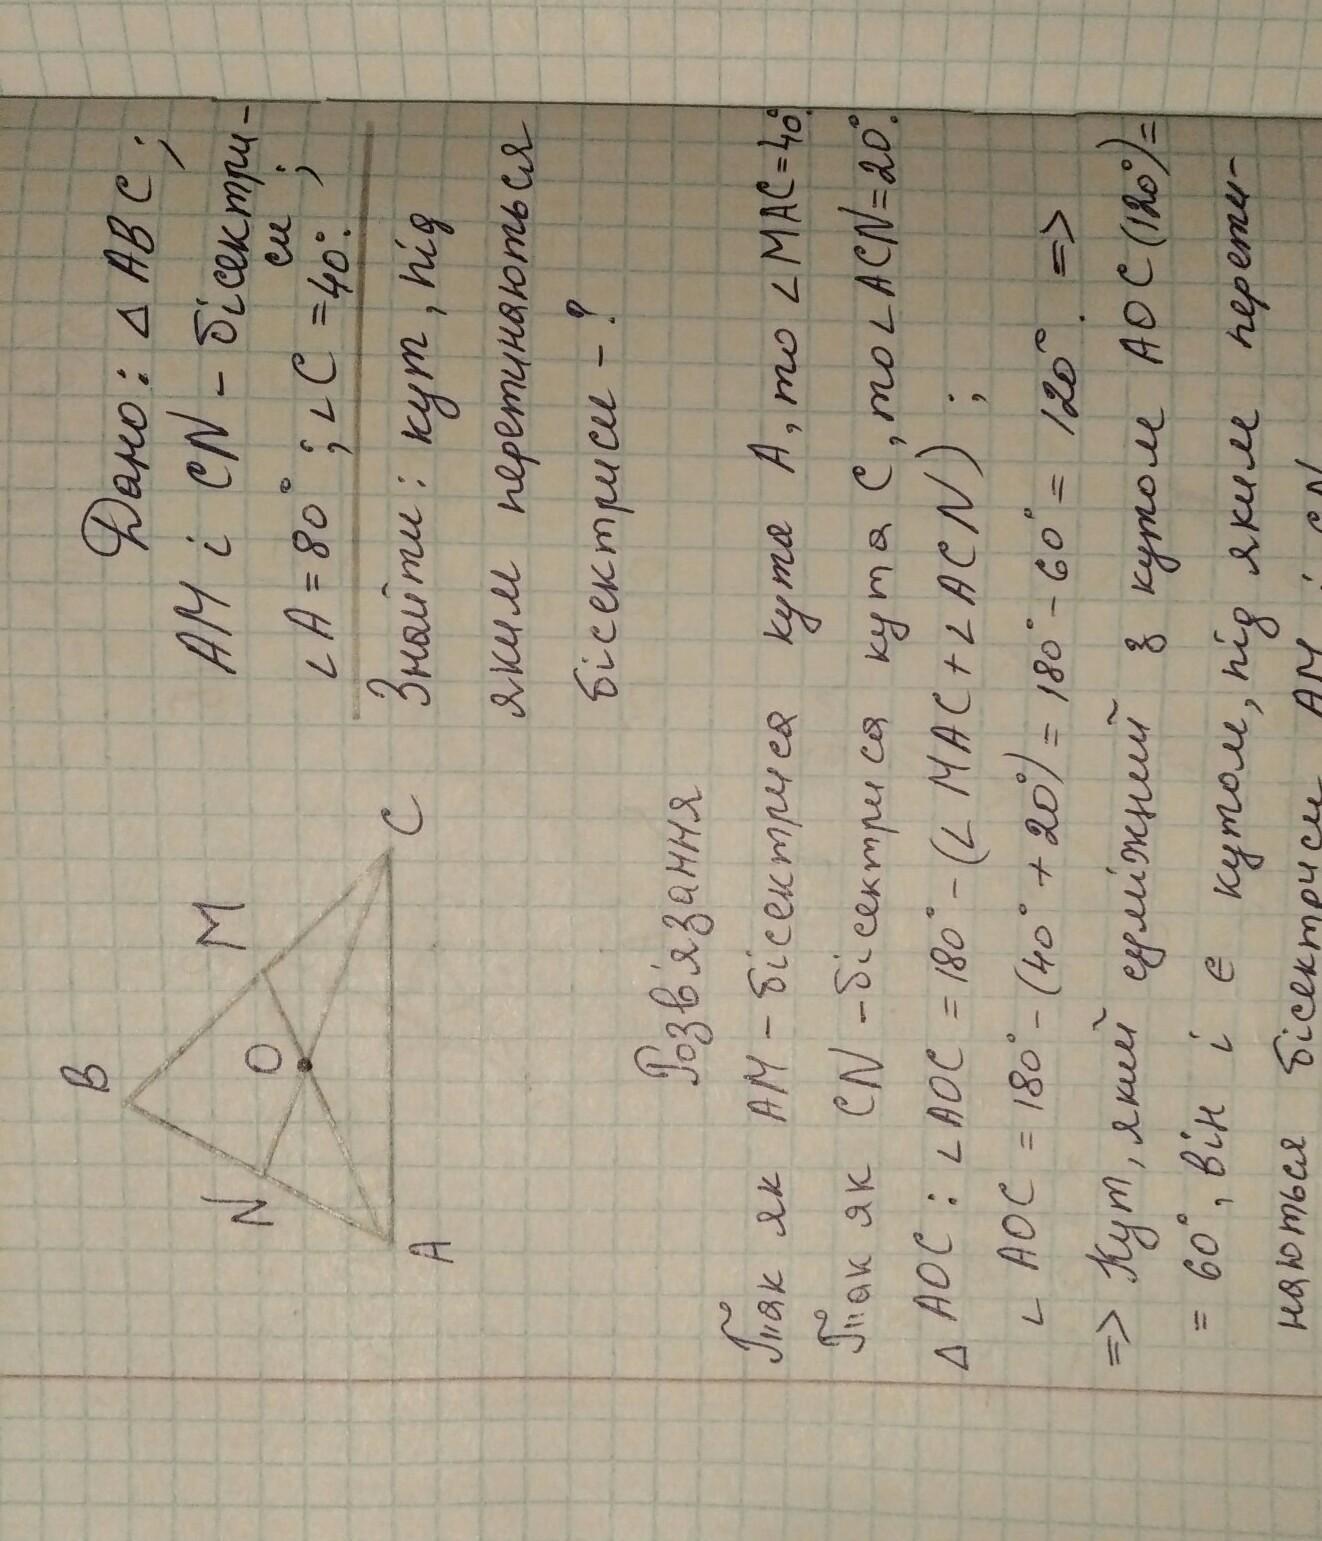 B
N
O
M
A
C
Дано: Δ ABC;
AM і CN – бісектри-
си;
∠A = 80°; ∠C = 40°.
Знайти: кут, під
яким перетинаються
бісектриси – ?
Розв'язання
Так як AM – бісектриса кута A, то ∠MAC = 40°.
Так як CN – бісектриса кута C, то ∠ACN = 20°.
Δ AOC: ∠AOC = 180° – (∠MAC + ∠ACN);
∠AOC = 180° – (40° + 20°) = 180° – 60° = 120°. =>
=> Кут, який суміжний з кутом AOC (120°) =
= 60°, він і є кутом, під яким перети-
наються бісектриси AM і CN